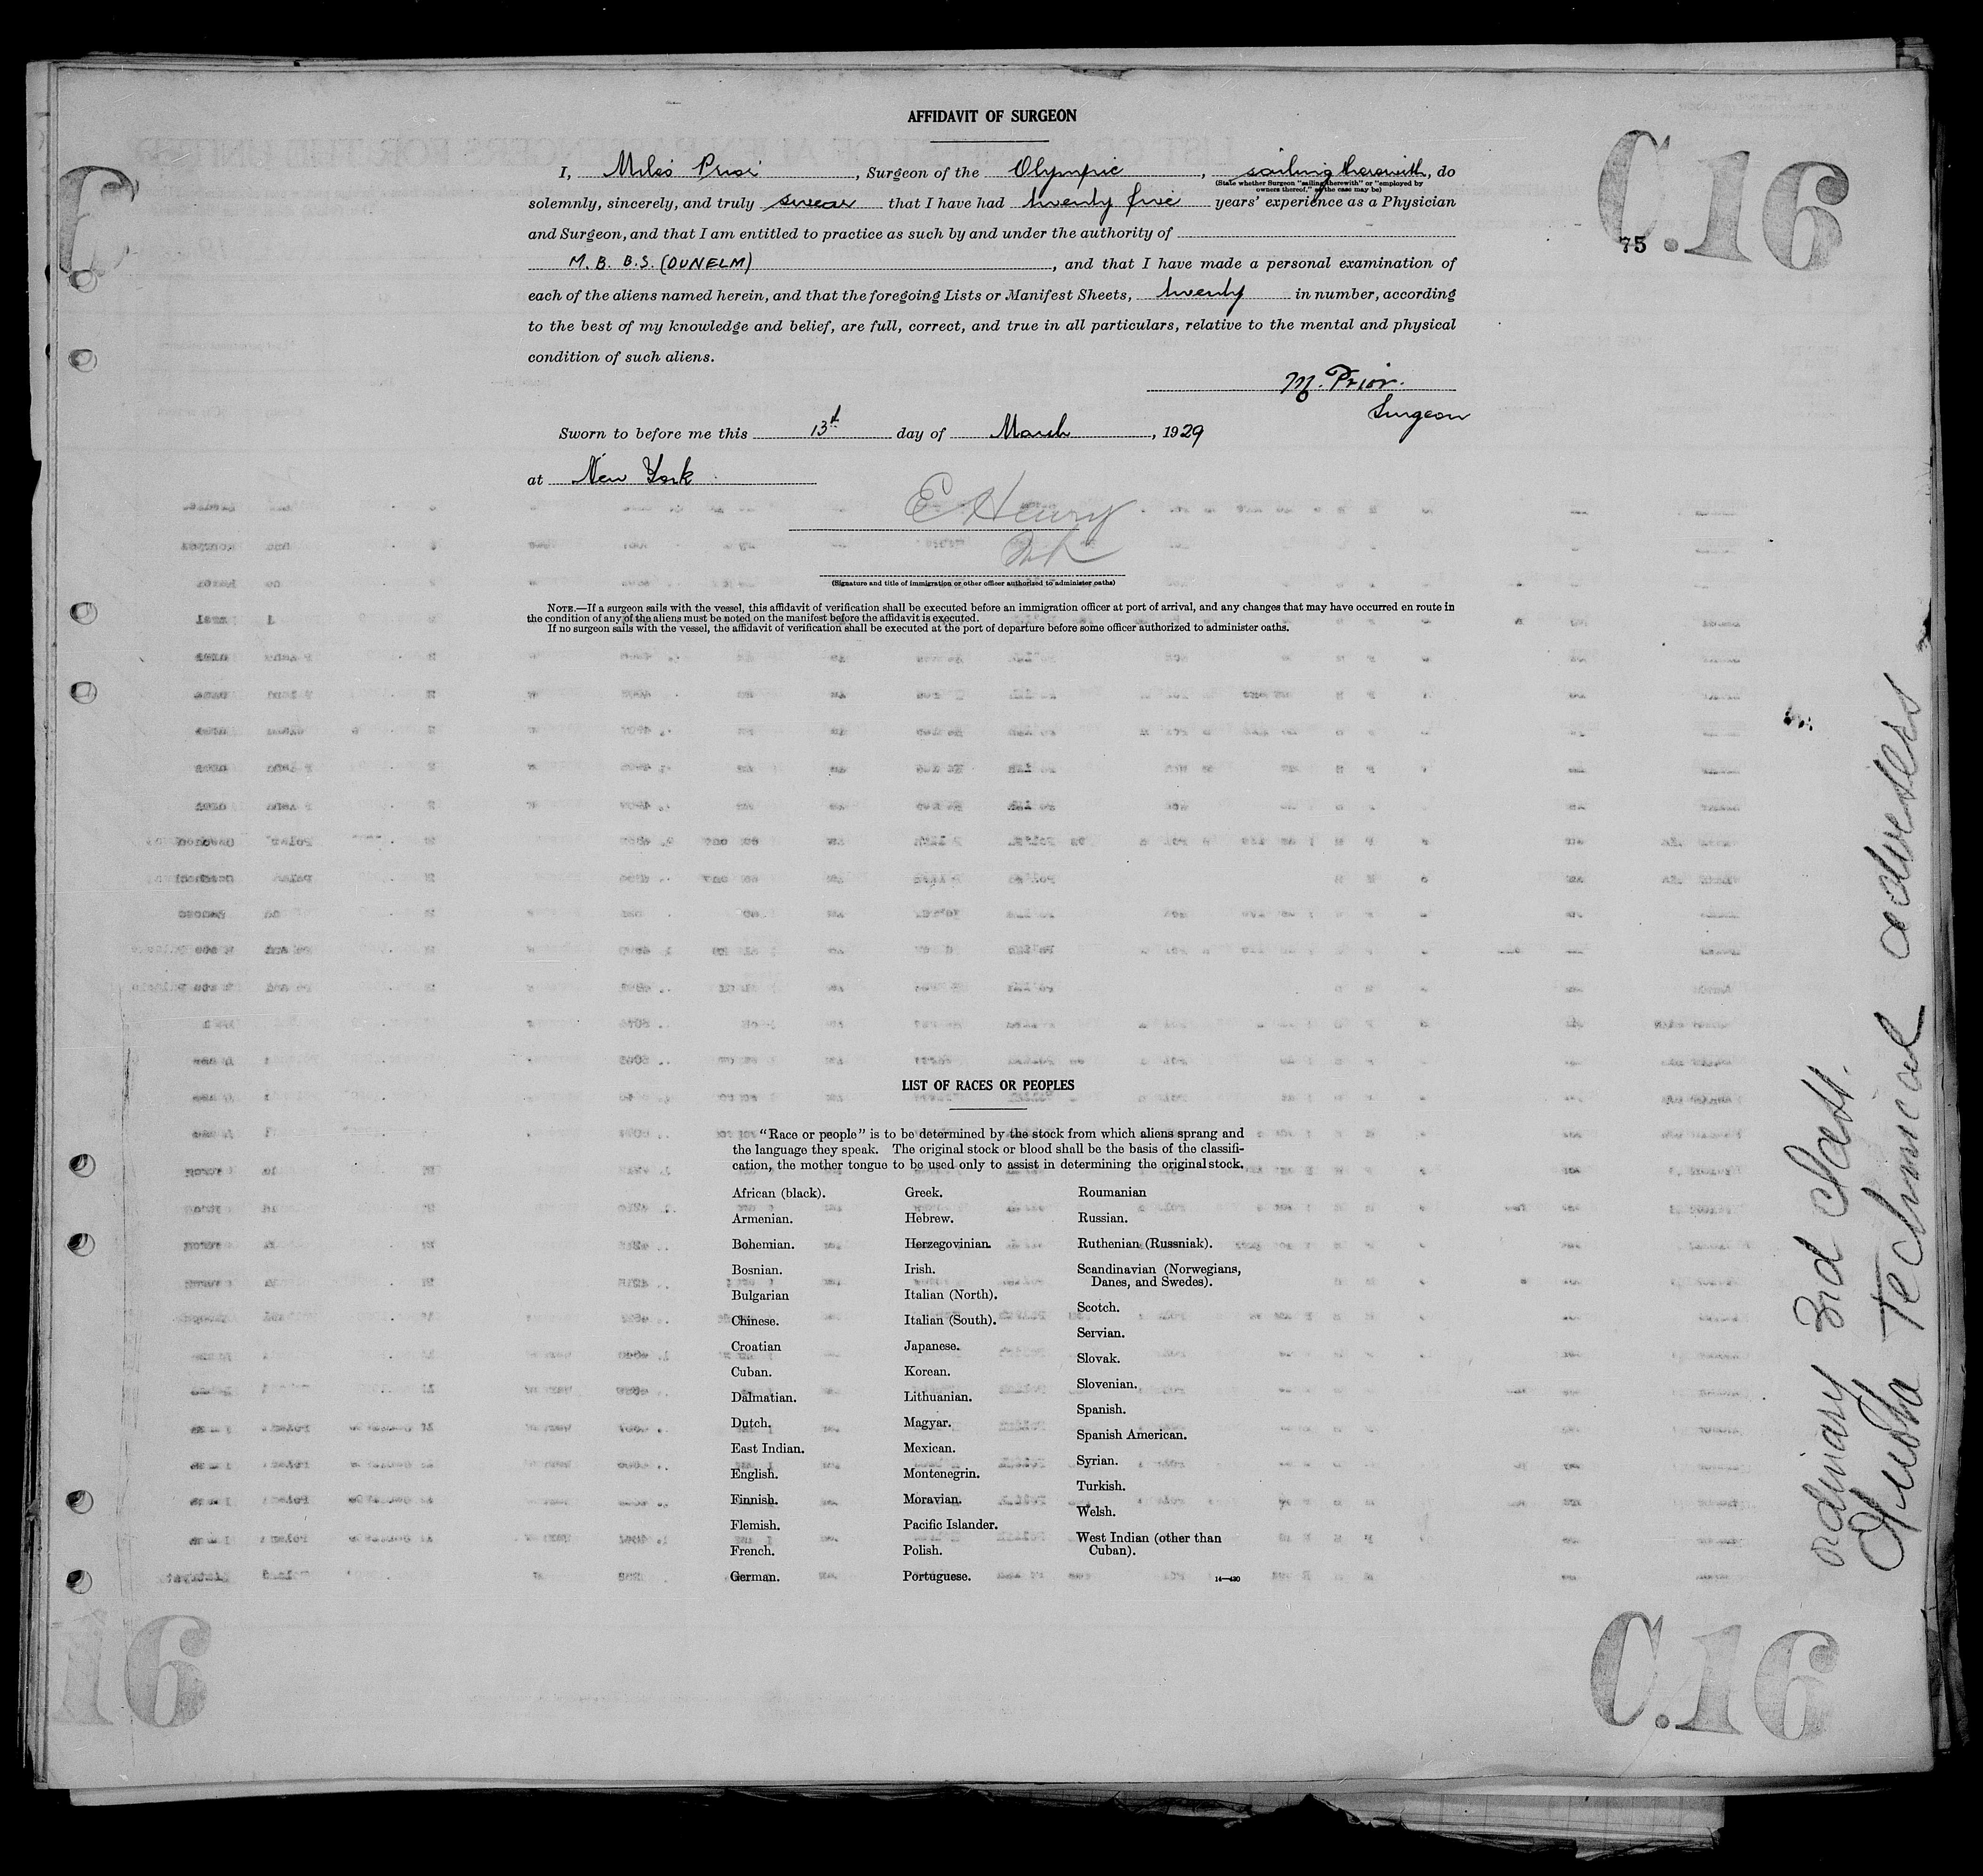 AFFIDAVIT OF SURGEON
C.16
75
I, Miles Prior, Surgeon of the Olympic, sailing therewith, do
(State whether Surgeon "sailing therewith" or "employed by
owners thereof," as the case may be)
solemnly, sincerely, and truly swear that I have had twenty five years' experience as a Physician
and Surgeon, and that I am entitled to practice as such by and under the authority of
M.B. B.S. (DUNELM), and that I have made a personal examination of
each of the aliens named herein, and that the foregoing Lists or Manifest Sheets, twenty in number, according
to the best of my knowledge and belief, are full, correct, and true in all particulars, relative to the mental and physical
condition of such aliens.
M. Prior.
Surgeon
Sworn to before me this 13th day of March, 1929
at New York
E Henry
(Signature and title of immigration or other officer authorized to administer oaths)
NOTE.—If a surgeon sails with the vessel, this affidavit of verification shall be executed before an immigration officer at port of arrival, and any changes that may have occurred en route in
the condition of any of the aliens must be noted on the manifest before the affidavit is executed.
If no surgeon sails with the vessel, the affidavit of verification shall be executed at the port of departure before some officer authorized to administer oaths.
LIST OF RACES OR PEOPLES
"Race or people" is to be determined by the stock from which aliens sprang and
the language they speak. The original stock or blood shall be the basis of the classifi-
cation, the mother tongue to be used only to assist in determining the original stock.
African (black).
Armenian.
Bohemian.
Bosnian.
Bulgarian
Chinese.
Croatian
Cuban.
Dalmatian.
Dutch.
East Indian.
English.
Finnish.
Flemish.
French.
German.
Greek.
Hebrew.
Herzegovinian.
Irish.
Italian (North).
Italian (South).
Japanese.
Korean.
Lithuanian.
Magyar.
Mexican.
Montenegrin.
Moravian.
Pacific Islander.
Polish.
Portuguese.
Roumanian
Russian.
Ruthenian (Russniak).
Scandinavian (Norwegians,
Danes, and Swedes).
Scotch.
Servian.
Slovak.
Slovenian.
Spanish.
Spanish American.
Syrian.
Turkish.
Welsh.
West Indian (other than
Cuban).
14—430
ordinary 3rd class.
Technical address
16
C.16